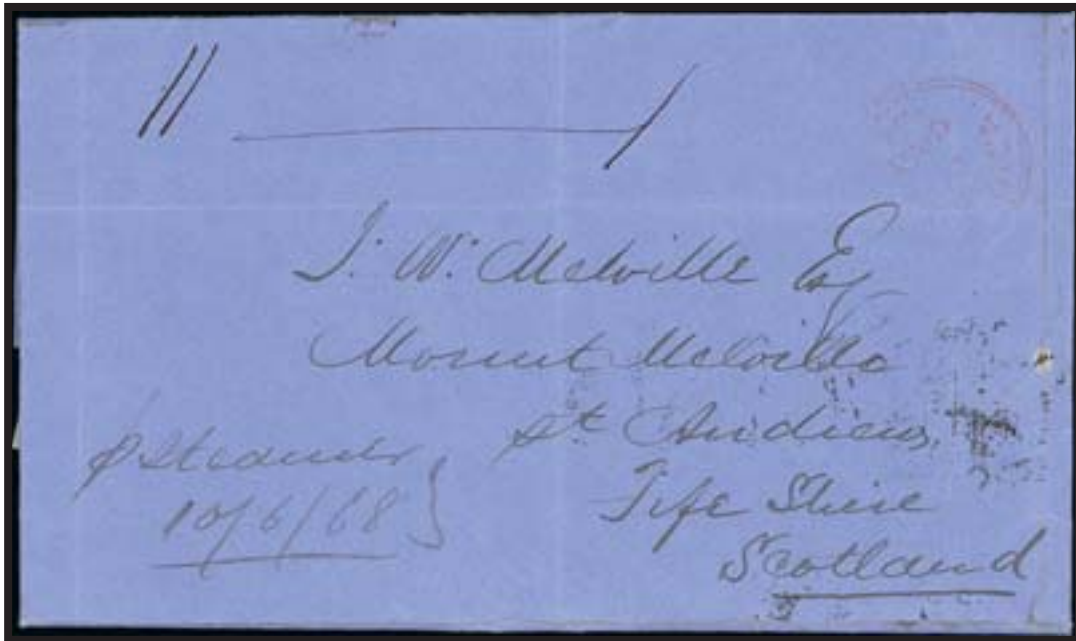 J. W. Melville Esq
Mount Melville
St Andrews,
Fife Shire
Scotland
p Steamer
10/6/68